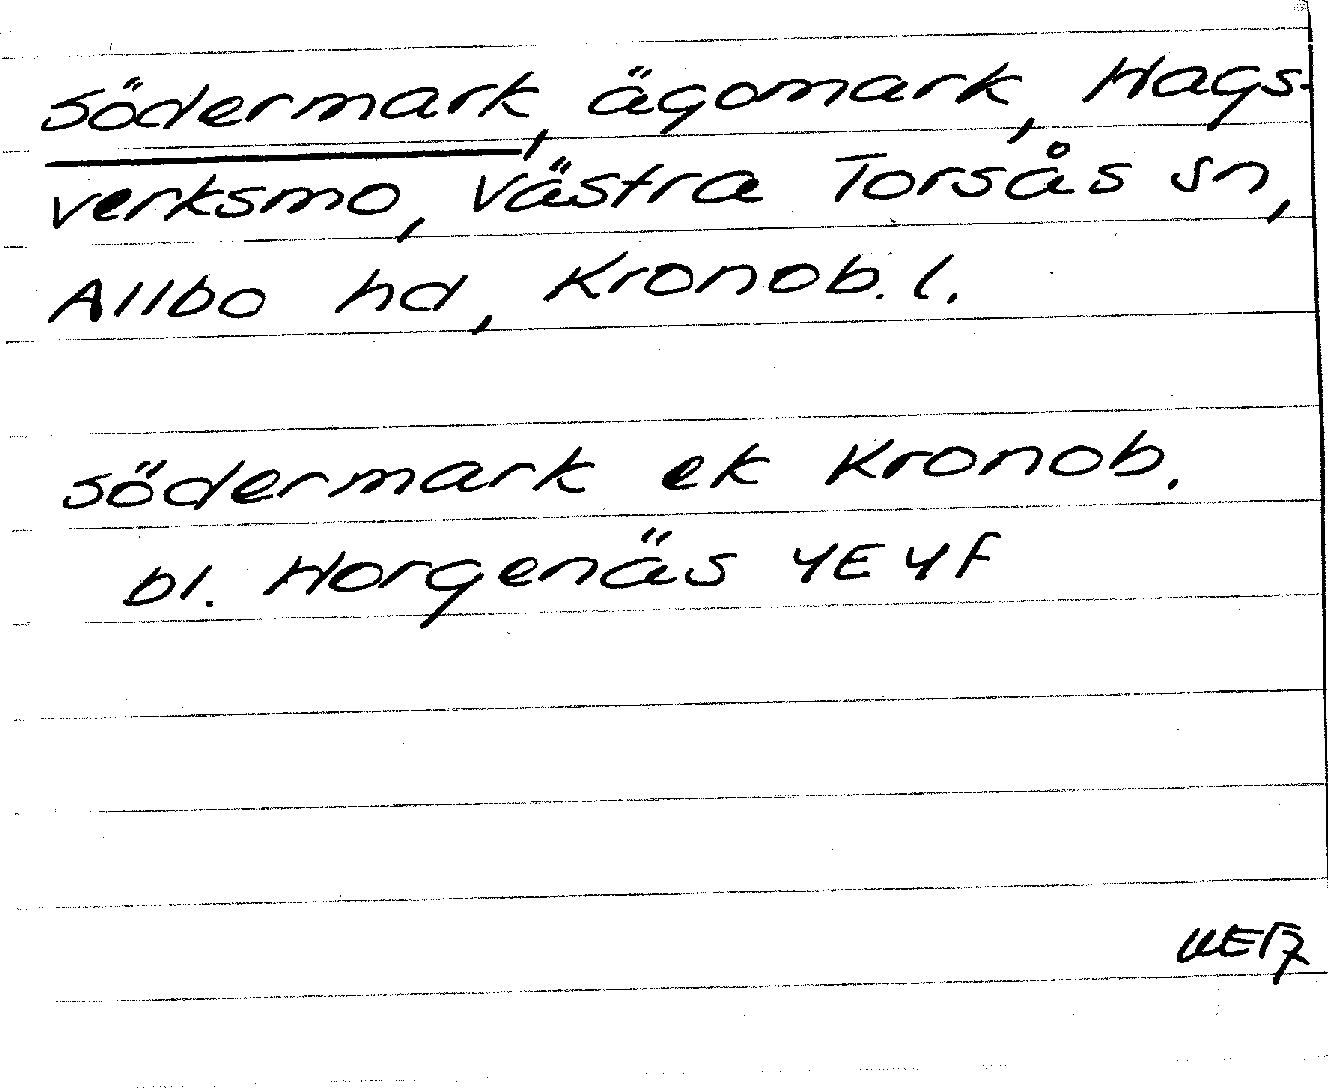 Södermark, ägomark, Hags-
verksmo, Västra Torsås sn,
Allbo hd, Kronob. l.
Södermark ek Kronob.
bl. Horgenäs 4E 4F